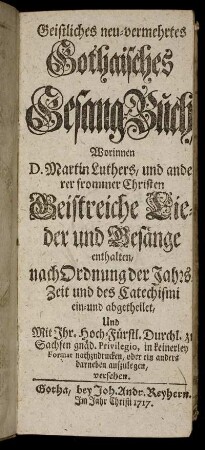 Geistliches neu-vermehrtes
Gothaisches
Gesang-Buch
Worinnen
D. Martin Luthers, und ande
rer frommer Christen
Geistreiche Lie-
der und Gesänge
enthalten,
nach Ordnung der Jahrs-
Zeit und des Catechismi
ein- und abgetheilet,
Und
Mit Ihr. Hoch-Fürstl. Durchl. zu
Sachsen gnäd. Privilegio, in keinerley
Format nachzudrucken, oder ein anders
darneben aufzulegen,
versehen.
Gotha, bey Joh. Andr. Reyhern.
Im Jahr Christi 1717.